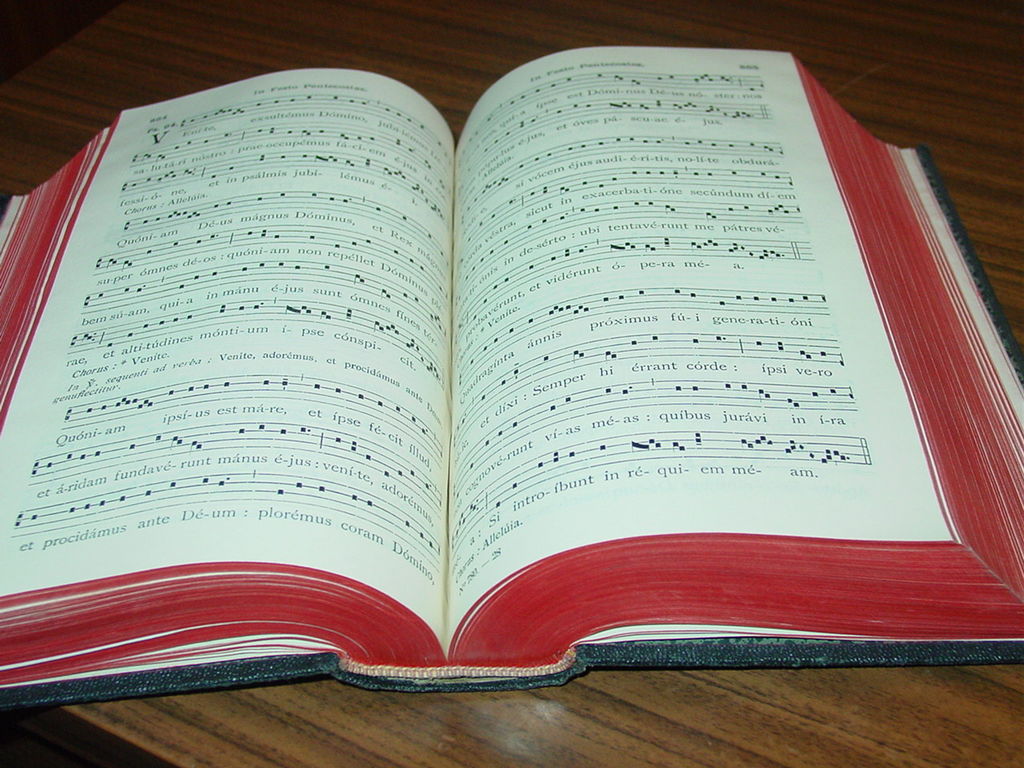 In Festo Pentecostes.
Ps. 94.
V Ení-te, exsultémus Dómino, jubi-
sa-lu-tá-ri nóstro : prae-occupémus fá-ci-em éjus
fessi-ó-ne, et in psálmis jubi- lémus é- i.
Chorus : Allelúia.
Quóni-am Dé-us mágnus Dóminus, et Rex mágnus
su-per ómnes dé-os : quóni-am non repéllet Dóminus plé-
bem sú-am, qui-a in mánu é-jus sunt ómnes fínes tér-
rae, et alti-túdines mónti-um í- pse cónspi- cit.
Chorus : * Veníte.
In ℣. sequenti ad verba : Venite, adorémus, et procidámus ante Deum
genuflectitur.
Quóni-am ipsí-us est má-re, et ípse fé-cit íllud,
et á-ridam fundavé-runt mánus é-jus : vení-te, adorémus,
et procidámus ante Dé-um : plorémus coram Dómino,
In Festo Pentecostes.
qui-a ípse est Dómi-nus Dé-us nó- ster : nos
pópulus éjus, et óves pá- scu-ae é- jus.
Allelúia.
si vócem éjus audi-é-ri-tis, no-lí-te obdurá-
véstra, sicut in exacerba-ti-óne secúndum dí-em
ónis in de-sérto : ubi tentavé-runt me pátres vé-
probavérunt, et vidérunt ó- pe-ra mé- a.
* Veníte.
Quadragínta ánnis próximus fú-i gene-ra-ti-óni
et díxi : Semper hi érrant córde : ípsi ve-ro
cognové-runt ví-as mé-as : quíbus jurávi in í-ra
a : Si intro-íbunt in ré- qui- em mé- am.
Chorus : Allelúia.
Nº 780. — 28